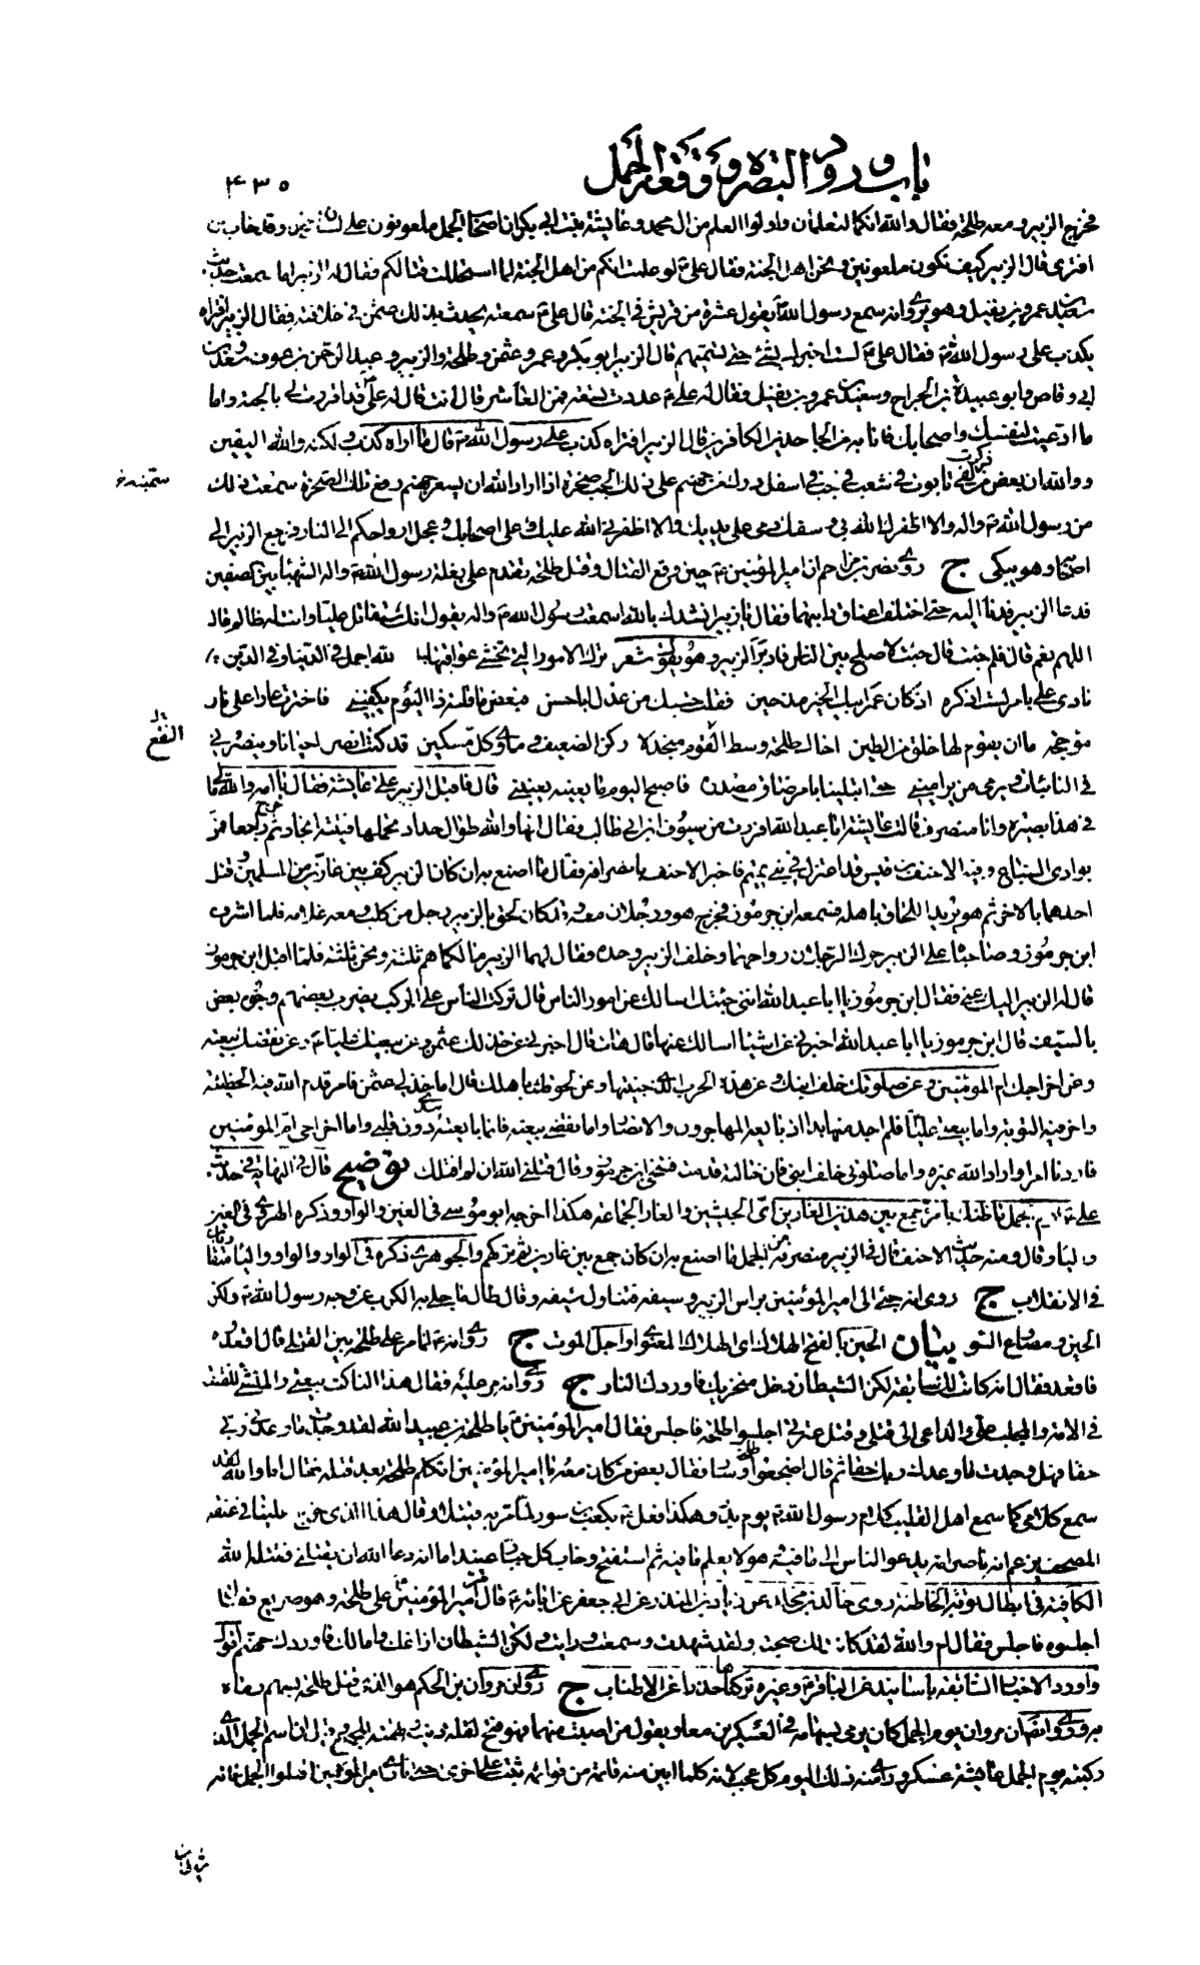 باب ورود البصرة ووقعة الجمل
٤٣٥
فخرج الزبير ومعه طلحة فقال والله انكما لتعلمان واولوا العلم من ال محمد وعايشة بنت ابي بكر ان اصحاب الجمل ملعونون على لسان وقد خاب من
افترى قال الزبير كيف نكون ملعونين ونحن اهل الجنة فقال علي ع لو علمت انكم من اهل الجنة لما استحللت قتالكم فقال له الزبير اما سمعت حديث
سعيد بن عمرو بن نفيل وهو يروي انه سمع رسول الله يقول عشرة من قريش في الجنة قال علي ع سمعته يحدث بذلك عثمن في خلافته فقال الزبير افتراه
يكذب على رسول الله ص فقال علي ع لست اخبرك بشئ حتى تسميهم قال الزبير ابو بكر وعمر وعثمن وطلحة والزبير وعبد الرحمن بن عوف وسعد بن
ابي وقاص وابو عبيدة بن الجراح وسعيد بن عمرو بن نفيل فقال له علي ع عددت تسعة فمن العاشر قال انت قال له علي قد اقررت لي بالجنة واما
ما ادعيت لنفسك واصحابك فانا به من الجاحدين الكافرين قال الزبير افتراه كذب على رسول الله ص قال ما اراه كذب ولكنه والله اليقين
ووالله ان بعض من ذكرت لفي تابوت في شعب في جب في اسفل درك من جهنم على ذلك الجب صخرة اذا اراد الله ان يسعر جهنم رفع تلك الصخرة سمعت ذلك
سميته خ
من رسول الله ص واله والا اظفرك الله بي وسفك دمي على يديك والا اظفرني الله عليك وعلى اصحابك وعجل ارواحكم الى النار فرجع الزبير الى
اصحابه وهو يبكي ج روى نصر بن مزاحم ان امير المؤمنين ع حين وقع القتال وقتل طلحة تقدم على بغلة رسول الله ص واله الشهباء بين الصفين
فدعا الزبير فدنا اليه حتى اختلف اعناق دابتيهما فقال يا زبير انشدك بالله اسمعت رسول الله ص واله يقول انك ستقاتل عليا وانت له ظالم قال
اللهم نعم قال فلم جئت قال جئت لاصلح بين الناس فادبر الزبير وهو يقول شعر ترك الامور التي تخشى عواقبها لله اجمل في الدنيا وفي الدين
نادى علي بامر لست اذكره اذ كان عمر ابيك الخير مذ حين فقلت حسبك من عذل ابا حسن فبعض ما قلته ذا اليوم يكفيني فاخترت عارا على نار
مؤججة ما ان يقوم لها خلق من الطين اخال طلحة وسط القوم منجدلا ركن الضعيف وماوى كل مسكين قد كنت انصر احيانا وينصرني
النقع
في النائبات ويرمي من يراميني حتى ابتلينا بامر ضاق مصدره فاصبح اليوم ما يعنيه يعنيني قال فاقبل الزبير على عايشة فقال يا امه والله ما لي
في هذا بصيرة وانا منصرف قالت عايشة ابا عبد الله افررت من سيوف ابن ابي طالب فقال انها والله طوال حداد تحملها فتية انجاد ثم خرج راجعا فمر
بوادي السباع وفيه الاحنف بن قيس قد اعتزل في بني تميم فاخبر الاحنف بانصرافه فقال ما اصنع به ان كان الزبير لف بين غارين من المسلمين وقتل
احدهما بالاخر ثم هو يريد اللحاق باهله فسمعه ابن جرموز فخرج هو ورجلان معه وقد كان لحق بالزبير رجل من كلب ومعه غلامه فلما اشرف
ابن جرموز وصاحباه على الزبير حرك الرجلان رواحلهما وخلفا الزبير وحده فقال لهما الزبير ما لكما هم ثلثة ونحن ثلثة فلما اقبل ابن جرموز
قال له الزبير اليك عني فقال ابن جرموز يا ابا عبد الله انني جئتك اسالك عن امور الناس قال تركت الناس على الركب يضرب بعضهم وجوه بعض
بالسيف قال ابن جرموز يا ابا عبد الله اخبرني عن اشياء اسالك عنها قال هات قال اخبرني عن خذلك عثمن وعن بيعتك عليا ع وعن نقضك بيعته
وعن اخراجك ام المؤمنين وعن صلوتك خلف ابنك وعن هذه الحرب التي جنيتها وعن لحوقك باهلك قال اما خذلي عثمن فامر قدم الله فيه الخطيئة
واخر فيه التوبة واما بيعتي عليا فلم اجد منها بدا اذ بايعه المهاجرون والانصار واما نقضي بيعته فانما بايعته بيدي دون قلبي واما اخراجي ام المؤمنين
فاردنا امرا واراد الله غيره واما صلوتي خلف ابني فان خالته قدمته فتنحى ابن جرموز وقال قتلني الله ان لم اقتلك توضيح قال في النهاية في حديث
علي ع يوم الجمل ما ظنك بامرئ جمع بين هذين الغارين اي الجيشين والغار الجماعة هكذا اخرجه ابو موسى في الغين والواو وذكره الهروي في الغين
والياء وقال ومنه حديث الاحنف قال في الزبير منصرفه من الجمل ما اصنع به ان كان جمع بين غارين ثم تركهم والجوهري ذكره في الواو والواو والياء متقاربان
في الانقلاب ج روى انه جئ الى امير المؤمنين براس الزبير وسيفه فتناول سيفه وقال طال ما جلى به الكرب عن وجه رسول الله ص ولكن
الحين ومصارع السوء بيان الحين بالفتح الهلاك اي الهلاك المعنوي او اجل الموت ج روى انه ع لما مر على طلحة بين القتلى قال اقعدوه
فاقعد فقال انه كانت لك سابقة لكن الشيطان دخل منخريك فاوردك النار ج روى انه مر عليه فقال هذا الناكث بيعتي والمنشئ للفتنة
في الامة والمجلب علي والداعي الى قتلي وقتل عترتي اجلسوا طلحة فاجلس فقال امير المؤمنين ع يا طلحة بن عبيد الله لقد وجدت ما وعدني ربي
حقا فهل وجدت ما وعدك ربك حقا ثم قال اضجعوا طلحة وسار فقال بعض من كان معه يا امير المؤمنين اتكلم طلحة بعد قتله فقال اما والله لقد
سمع كلامي كما سمع اهل القليب كلام رسول الله ص يوم بدر وهكذا فعل ع بكعب بن سور لما مر به قتيلا وقال هذا الذي خرج علينا في عنقه
المصحف يزعم انه ناصر امه يدعو الناس الى ما فيه وهو لا يعلم ما فيه ثم استفتح وخاب كل جبار عنيد اما انه دعا الله ان يقتلني فقتله الله
الكافية في ابطال توبة الخاطئة روى خالد بن مخلد عن زياد بن المنذر عن ابي جعفر عن ابائه ع قال مر امير المؤمنين على طلحة وهو صريع فقال
اجلسوه فاجلس فقال ام والله لقد كانت لك صحبة ولقد شهدت وسمعت ورايت ولكن الشيطان ازاغك وامالك فاوردك جهنم اقول
واورد الاخبار السابقة باسانيد عن الباقر ع وغيره تركناها حذرا عن الاطناب ج روى ان مروان بن الحكم هو الذي قتل طلحة بسهم رماه
به وروى ايضا ان مروان يوم الجمل كان يرمي بسهامه في العسكرين معا ويقول من اصبت منهما فهو فتح لقلة دينه وتهمته للجميع وقيل ان اسم الجمل الذي
ركبته يوم الجمل عايشة عسكر وراى منه ذلك اليوم كل عجب لانه كلما ابين منه قائمة من قوائمه ثبت على اخرى حتى نادى امير المؤمنين اقتلوا الجمل فانه
شيطان